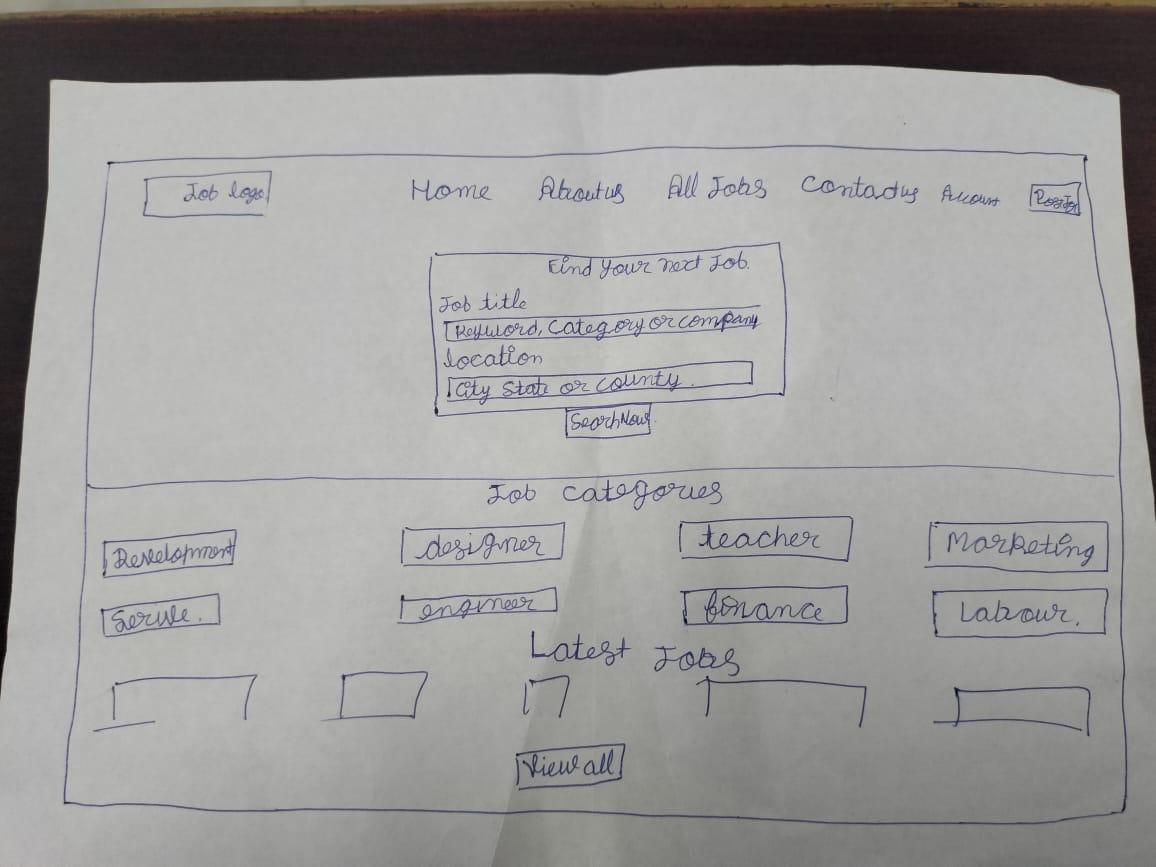 Job logo Home Aboutus All Jobs Contactus Account Post Job
Find Your next Job.
Job title
Keyword, Category or company
location
City State or county.
Search Now
Job categories
Development designer teacher Marketing
engineer finance Labour.
Latest Jobs
View all